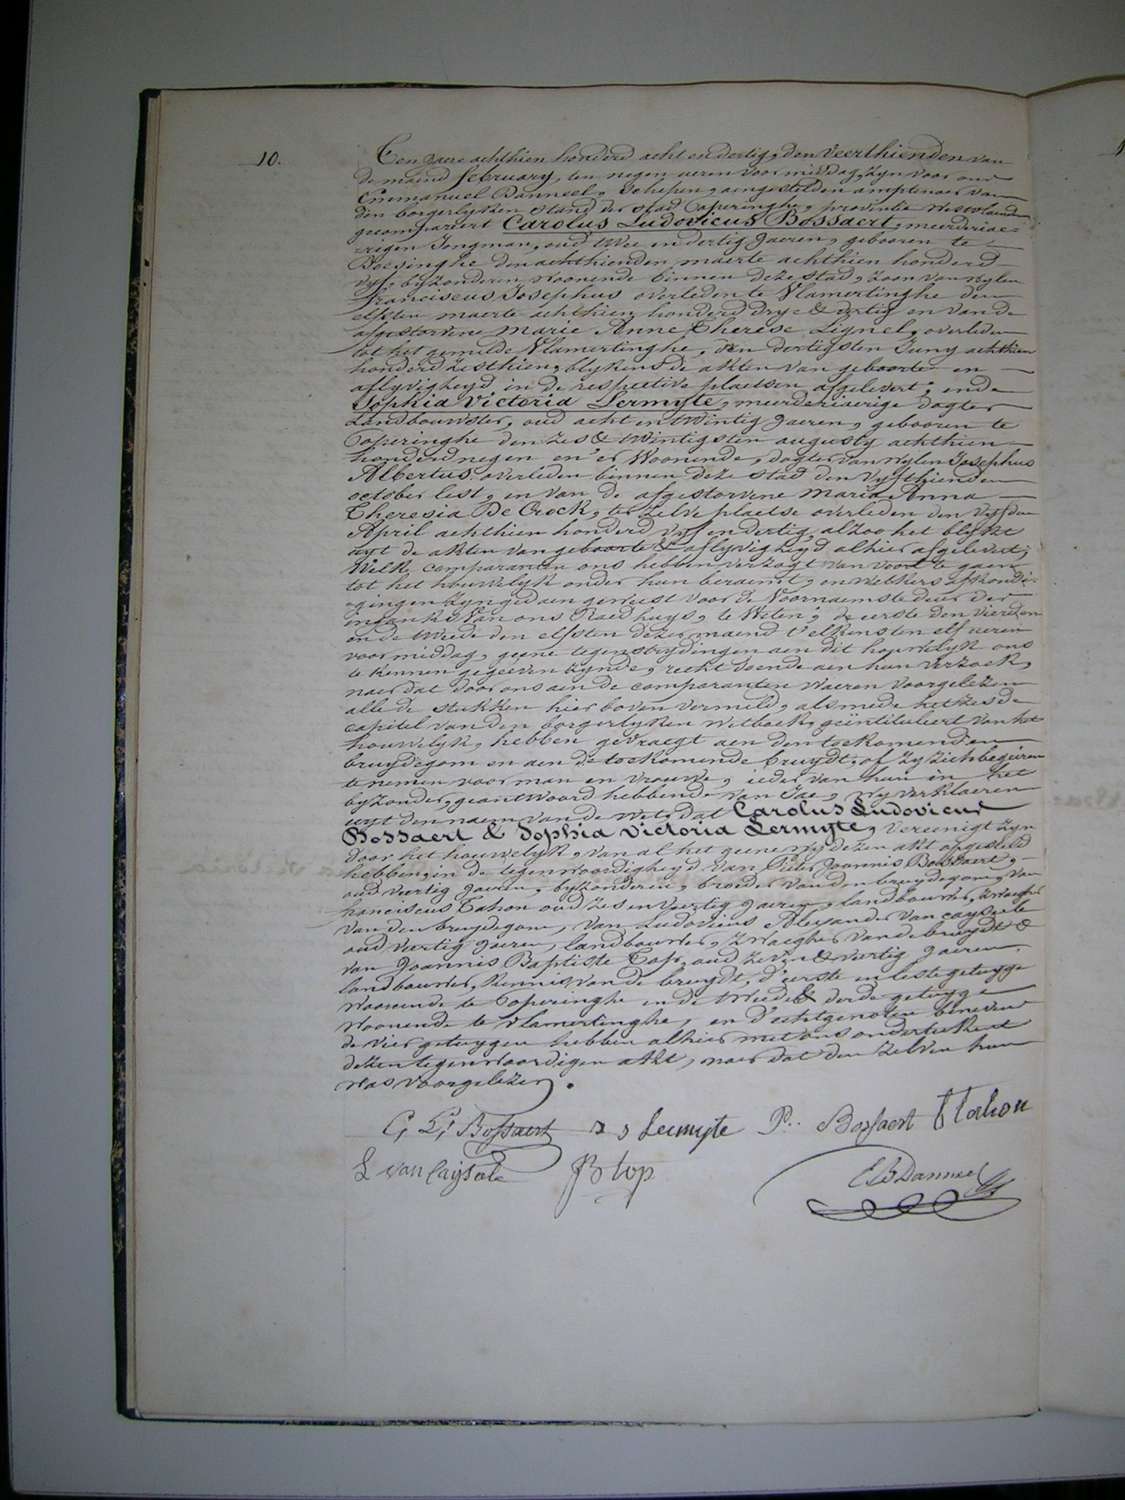 10.
Een jaere achthien honderd acht en dertig, den veerthienden van
de maend february, ten negen ueren voor middag, zyn voor ons
Emmanuel Danneel, Schepen, aengestelden amptenaer van
den borgerlyken stand der stad Poperinghe, provintie Westvlaenderen
gecompareert Carolus Ludovicus Bossaert, meerderjae-
rigen Jongman, oud twee en dertig jaeren, gebooren te
Boesinghe den achthienden maerte achthien honderd
vyf, byzonderen, woonende binnen deze stad, zoon van wylen
franciscus Josephus overleden te Vlamertinghe den
elfsten maerte achthien honderd drye & dertig en van de
afgestorvene Marie Anne Therese Lignel, overleden
tot het gemelde Vlamertinghe, den dertigsten Juny achthien
honderd zesthien, blykens de akten van geboorte en
aflyvigheyd in de respective plaetsen afgelevert; ende
Sophia Victoria Lermyte, meerderjaerige dogter
Landbouwster, oud acht en twintig jaeren, gebooren te
Poperinghe den zes & twintigsten augusty achthien
honderd negen en er woonende, dogter van wylen Josephus
Albertus overleden binnen deze stad den vyfthienden
october lest, en van de afgestorvene Maria Anna
Theresia De Crock, ter zelve plaetse overleden den vyfden
April achthien honderd vyf en dertig, alzoo het blykt
uyt de akten van geboorte & aflyvigheyd alhier afgelevert;
Welke comparanten ons hebben verzogt van voort te gaen
tot het houwelyk onder hun beraemt, en welkers afkondi-
gingen zyn gedaen geweest voor de Voornaemste deur der
inganks van ons Raedhuys, te Weten; de eerste den vierden
en de tweede den elfsten dezer maend t'elkensten elf ueren
voormiddag, geene tegenstrydingen aen dit houwelyk ons
te kennen gegeeven zynde, recht doende aen hun verzoek,
naer dat door ons aen de comparanten waeren voorgelezen
alle de stukken hier boven vermeld, alsmede het zesde
capitel van den borgerlyken wetboek, geintituleert van het
houwelyk, hebben gevraegt aen den toekomenden
bruydegom en aen de toekomende bruydt, of zy zich begeiren
te nemen voor man en vrouwe, ieder van hun in het
byzonder, geantwoord hebbende van Jae, wy verklaeren
uyt den naem van de wet dat Carolus Ludovicus
Bossaert & Sophia Victoria Lermyte, vereenigt zyn
door het houwelyk, van al het geene wy dezen akt opgesteld
hebben in de tegenwoordigheyd van Pieter Joannis Bossaert,
oud veertig jaeren, byzonderen, broeder van den bruydegom, van
franciscus Tahon oud zes en veertig jaeren, landbouwer, zwaeger
van den bruydegom, van Ludovicus Alexander Van Cayseele
oud veertig jaeren, landbouwer, zwaegher van de bruydt &
van Joannis Baptiste Top, oud zeven & veertig jaeren
landbouwer, kennis van de bruydt, d'eerste en leste getuyge
woonende te Poperinghe en de tweede & derde getuyge
woonende te Vlamertinghe, en d'echtgenoten benevens
de vier getuygen hebben alhier met ons onderteekent
dezen tegenwoordigen akt, naer dat den zelven hun
was voorgelezen.
C, L, Bossaert s s Lermyte P.. Bossaert f Tahon
L van Cayseele JB top E. Danneel